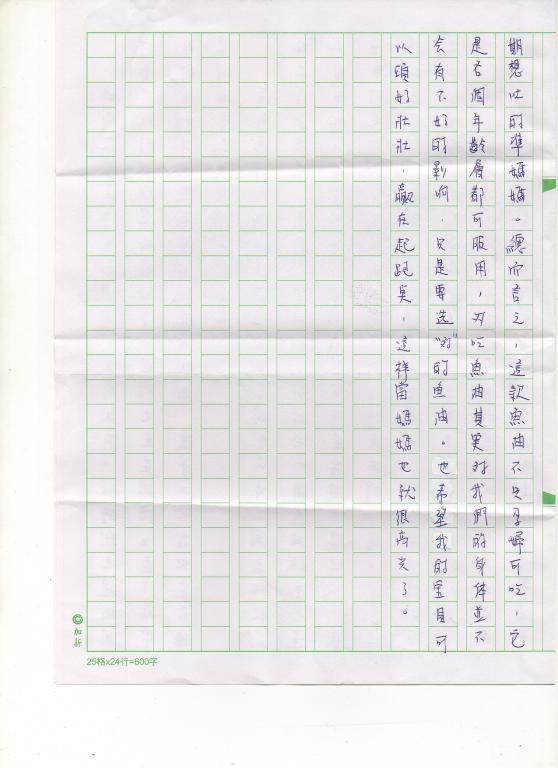 期想吐的準媽媽。總而言之，這款魚油不只孕婦可吃，它
是各個年齡層都可服用，多吃魚油其實对我們的身体並不
会有不好的影响，只是要选"对"的魚油。也希望我的宝貝可
以頭好壯壯，贏在起跑点，這样當媽媽也就很高兴了。
加新
25格x24行=600字